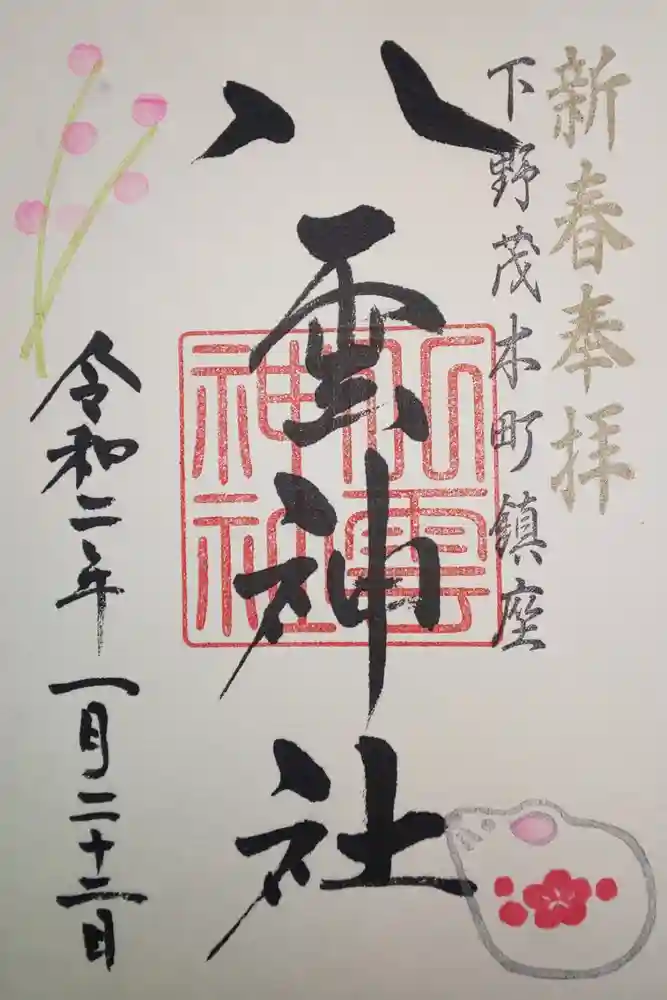 新春奉拝
下野茂木町鎮座
八雲神社
八雲
神社
令和二年一月二十二日